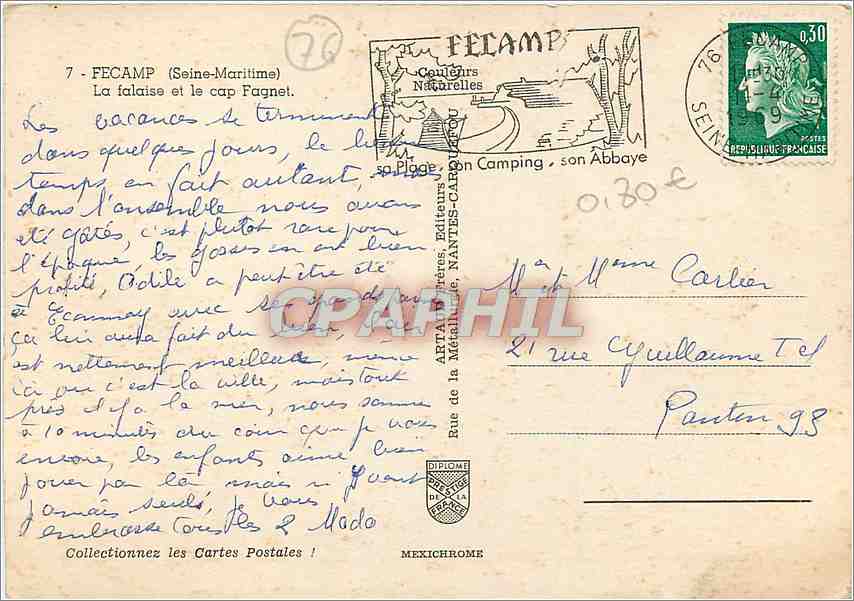 76
7 - FECAMP (Seine-Maritime)
La falaise et le cap Fagnet.
FECAMP
Couleurs
Naturelles
sa Plage, son Camping, son Abbaye
76
SEINE
0,30
POSTES
REPUBLIQUE FRANCAISE
0.30 €
Les vacances se terminent
dans quelques jours, le beau
temps en fait autant, mais
dans l'ensemble nous avons
été gâtés, c'est plutôt rare pour
l'époque, les gosses en ont bien
profité, Odile a peut être été
à avec ses grands parents
ça lui aura fait du bien, l'air
est nettement meilleur, même
ici ou c'est la ville, mais tout
près il y a la mer, nous sommes
à 10 minutes du coin que je vous
envoie, les enfants aime bien
jouer par là, mais n'y vont
jamais seuls, je vous
embrasse tous les 2 Mado
ARTAUD Frères, Editeurs
Rue de la Métallurgie, NANTES-CARQUEFOU
Mr et Mme Carlier
21 rue Guillaume Tel
Pantin 93
CPAPHIL
DIPLOME
PRESTIGE
DE LA
FRANCE
Collectionnez les Cartes Postales !
MEXICHROME